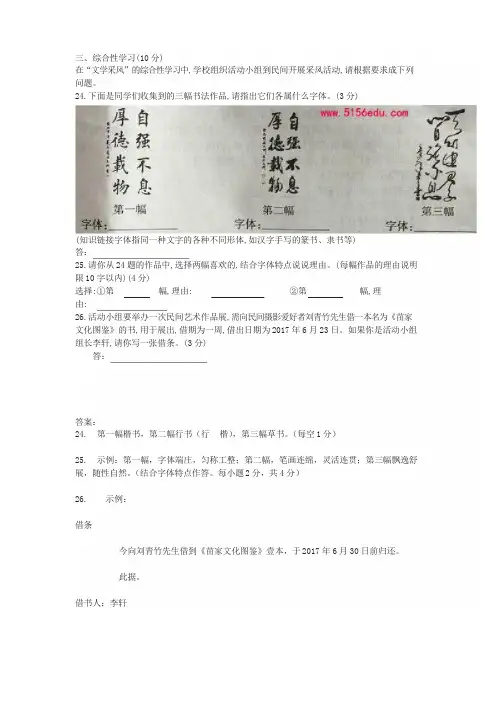 三、综合性学习(10分)
在“文学采风”的综合性学习中,学校组织活动小组到民间开展采风活动,请根据要求成下列
问题。
24.下面是同学们收集到的三幅书法作品,请指出它们各属什么字体。(3分)
www.5156edu.com
自强不息
厚德载物
自强不息
厚德载物
第一幅
第二幅
第三幅
字体:
字体:
字体:
(知识链接字体指同一种文字的各种不同形体,如汉字手写的篆书、隶书等)
答:
25.请你从24题的作品中,选择两幅喜欢的,结合字体特点说说理由。(每幅作品的理由说明
限10字以内)(4分)
选择:①第 幅,理由: ②第 幅,理
由:
26.活动小组要举办一次民间艺术作品展,需向民间摄影爱好者刘青竹先生借一本名为《苗家
文化图鉴》的书,用于展出,借期为一周,借出日期为2017年6月23日。如果你是活动小组
组长李轩,请你写一张借条。(3分)
答:
答案:
24. 第一幅楷书，第二幅行书（行 楷），第三幅草书。（每空1分）
25. 示例：第一幅，字体端庄，匀称工整；第二幅，笔画连绵，灵活连贯；第三幅飘逸舒
展，随性自然。（结合字体特点作答。每小题2分，共4分）
26. 示例：
借条
今向刘青竹先生借到《苗家文化图鉴》壹本，于2017年6月30日前归还。
此据。
借书人：李轩